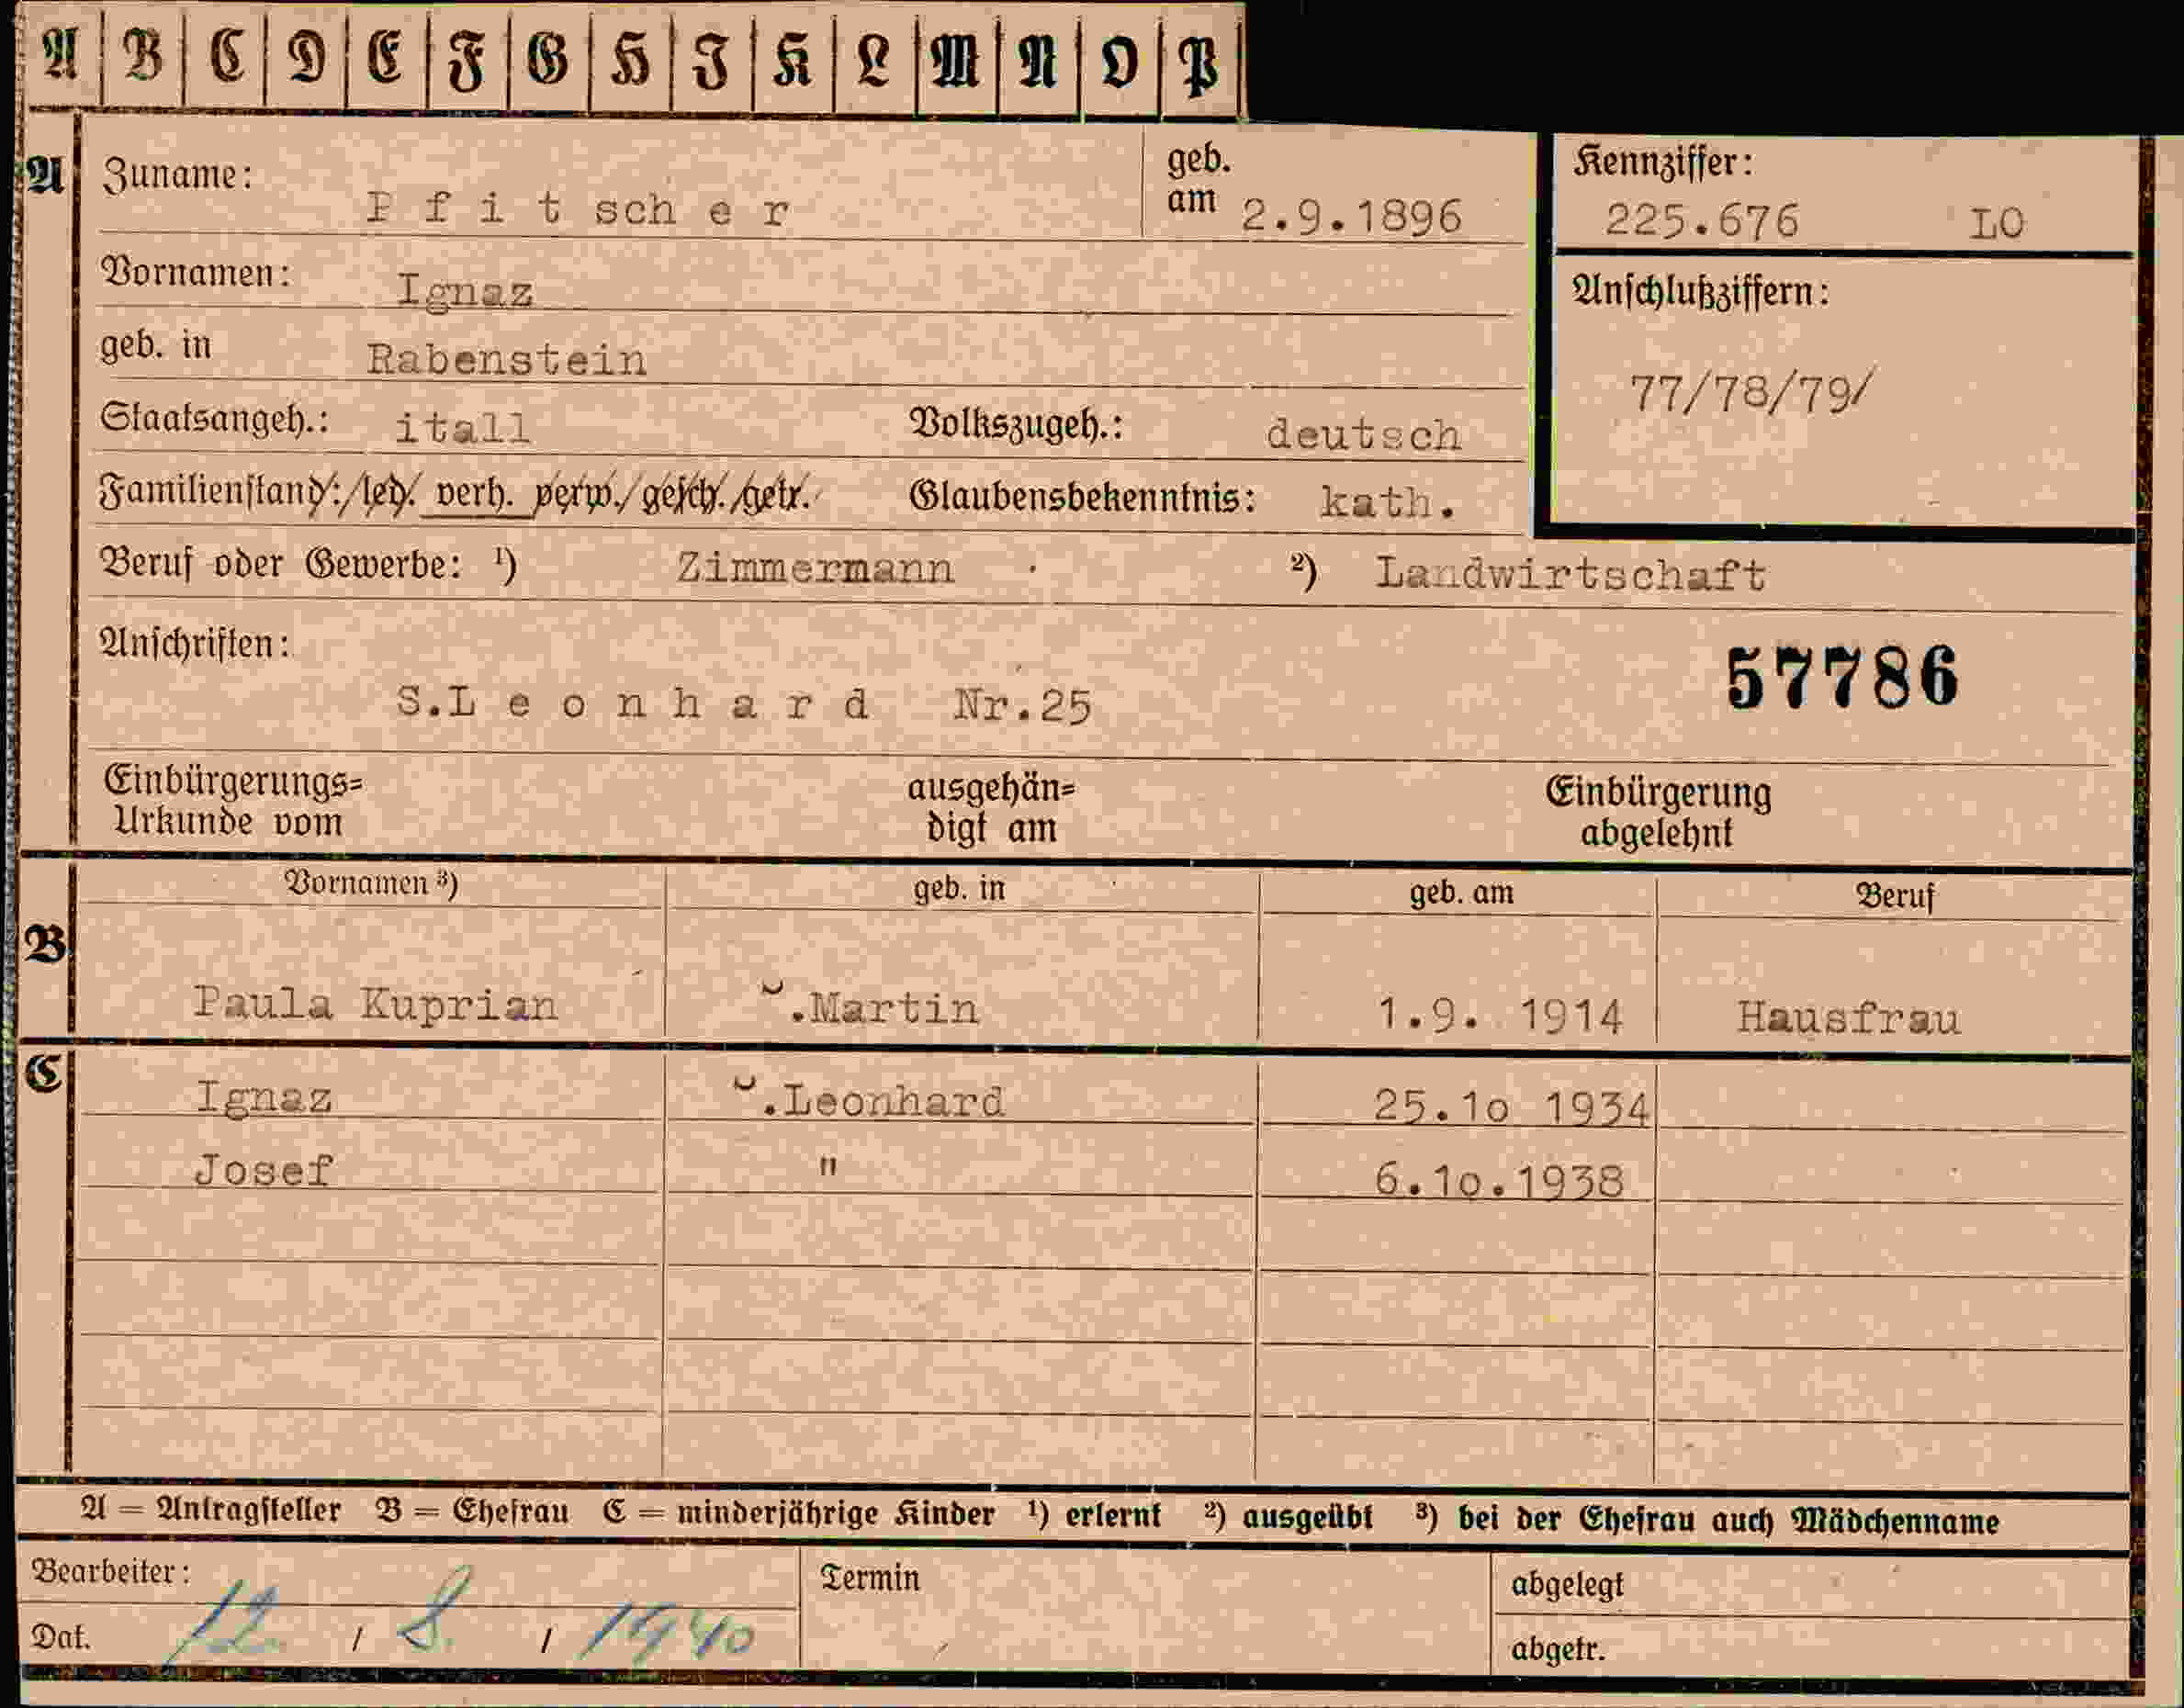 A B C D E F G H I K L M N O P
A Zuname: Pfitscher geb. am 2.9.1896 Kennziffer: 225.676 LO
Vornamen: Ignaz Anschlußziffern:
geb. in Rabenstein 77/78/79/
Staatsangeh.: itall Volkszugeh.: deutsch
Familienstand: led. verh. verw. gesch. getr. Glaubensbekenntnis: kath.
Beruf oder Gewerbe: ¹) Zimmermann ²) Landwirtschaft
Anschriften: 57786
S.Leonhard Nr.25
Einbürgerungs= ausgehän= Einbürgerung
Urkunde vom digt am abgelehnt
Vornamen ³) geb. in geb. am Beruf
B
Paula Kuprian .Martin 1.9. 1914 Hausfrau
C Ignaz .Leonhard 25.10 1934
Josef " 6.10.1938
A = Antragsteller B = Ehefrau C = minderjährige Kinder ¹) erlernt ²) ausgeübt ³) bei der Ehefrau auch Mädchenname
Bearbeiter: Termin abgelegt
Dat. 12 / 8 / 1940 abgetr.